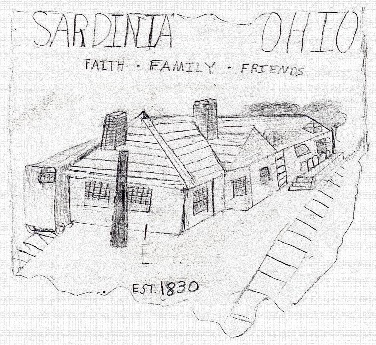 SARDINIA OHIO
FAITH · FAMILY · FRIENDS
EST. 1830